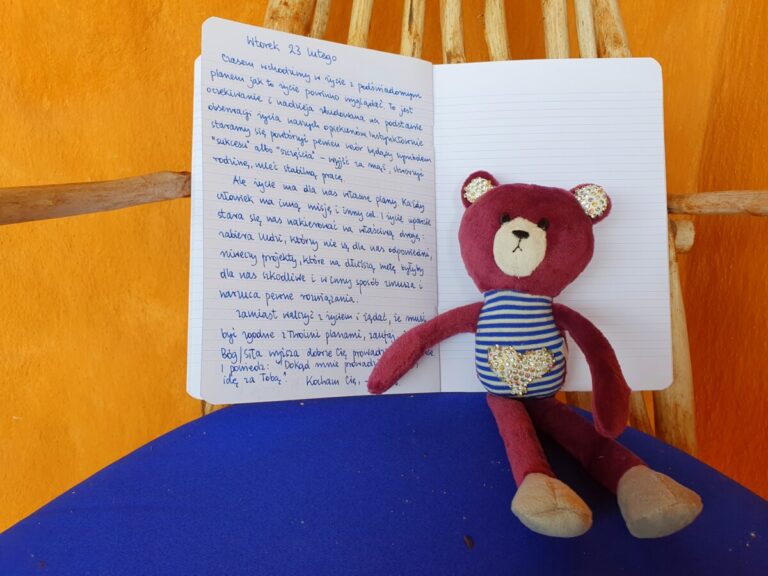 Wtorek 23 lutego
Czasem wchodzimy w życie z podświadomym
planem jak to życie powinno wyglądać. To jest
oczekiwanie i nadzieja zbudowana na podstawie
obserwacji życia naszych opiekunów. Instynktownie
staramy się powtórzyć pewien wzór będący symbolem
"sukcesu" albo "szczęścia" - wyjść za mąż, stworzyć
rodzinę, mieć stabilną pracę.
Ale życie ma dla nas własne plany. Każdy
człowiek ma inną misję i inny cel. I życie uparcie
stara się nas nakierować na właściwą drogę:
zabiera ludzi, którzy nie są dla nas odpowiedni,
niweczy projekty, które na dłuższą metę byłyby
dla nas szkodliwe i w inny sposób zmusza i
narzuca pewne rozwiązania.
Zamiast walczyć z życiem i żądać, że musi
być zgodne z Twoimi planami, zaufaj
Bóg/siła wyższa dobrze Cię prowadzi
I powiedz: "Dokąd mnie prowadzisz
idę za Tobą." Kocham Cię,